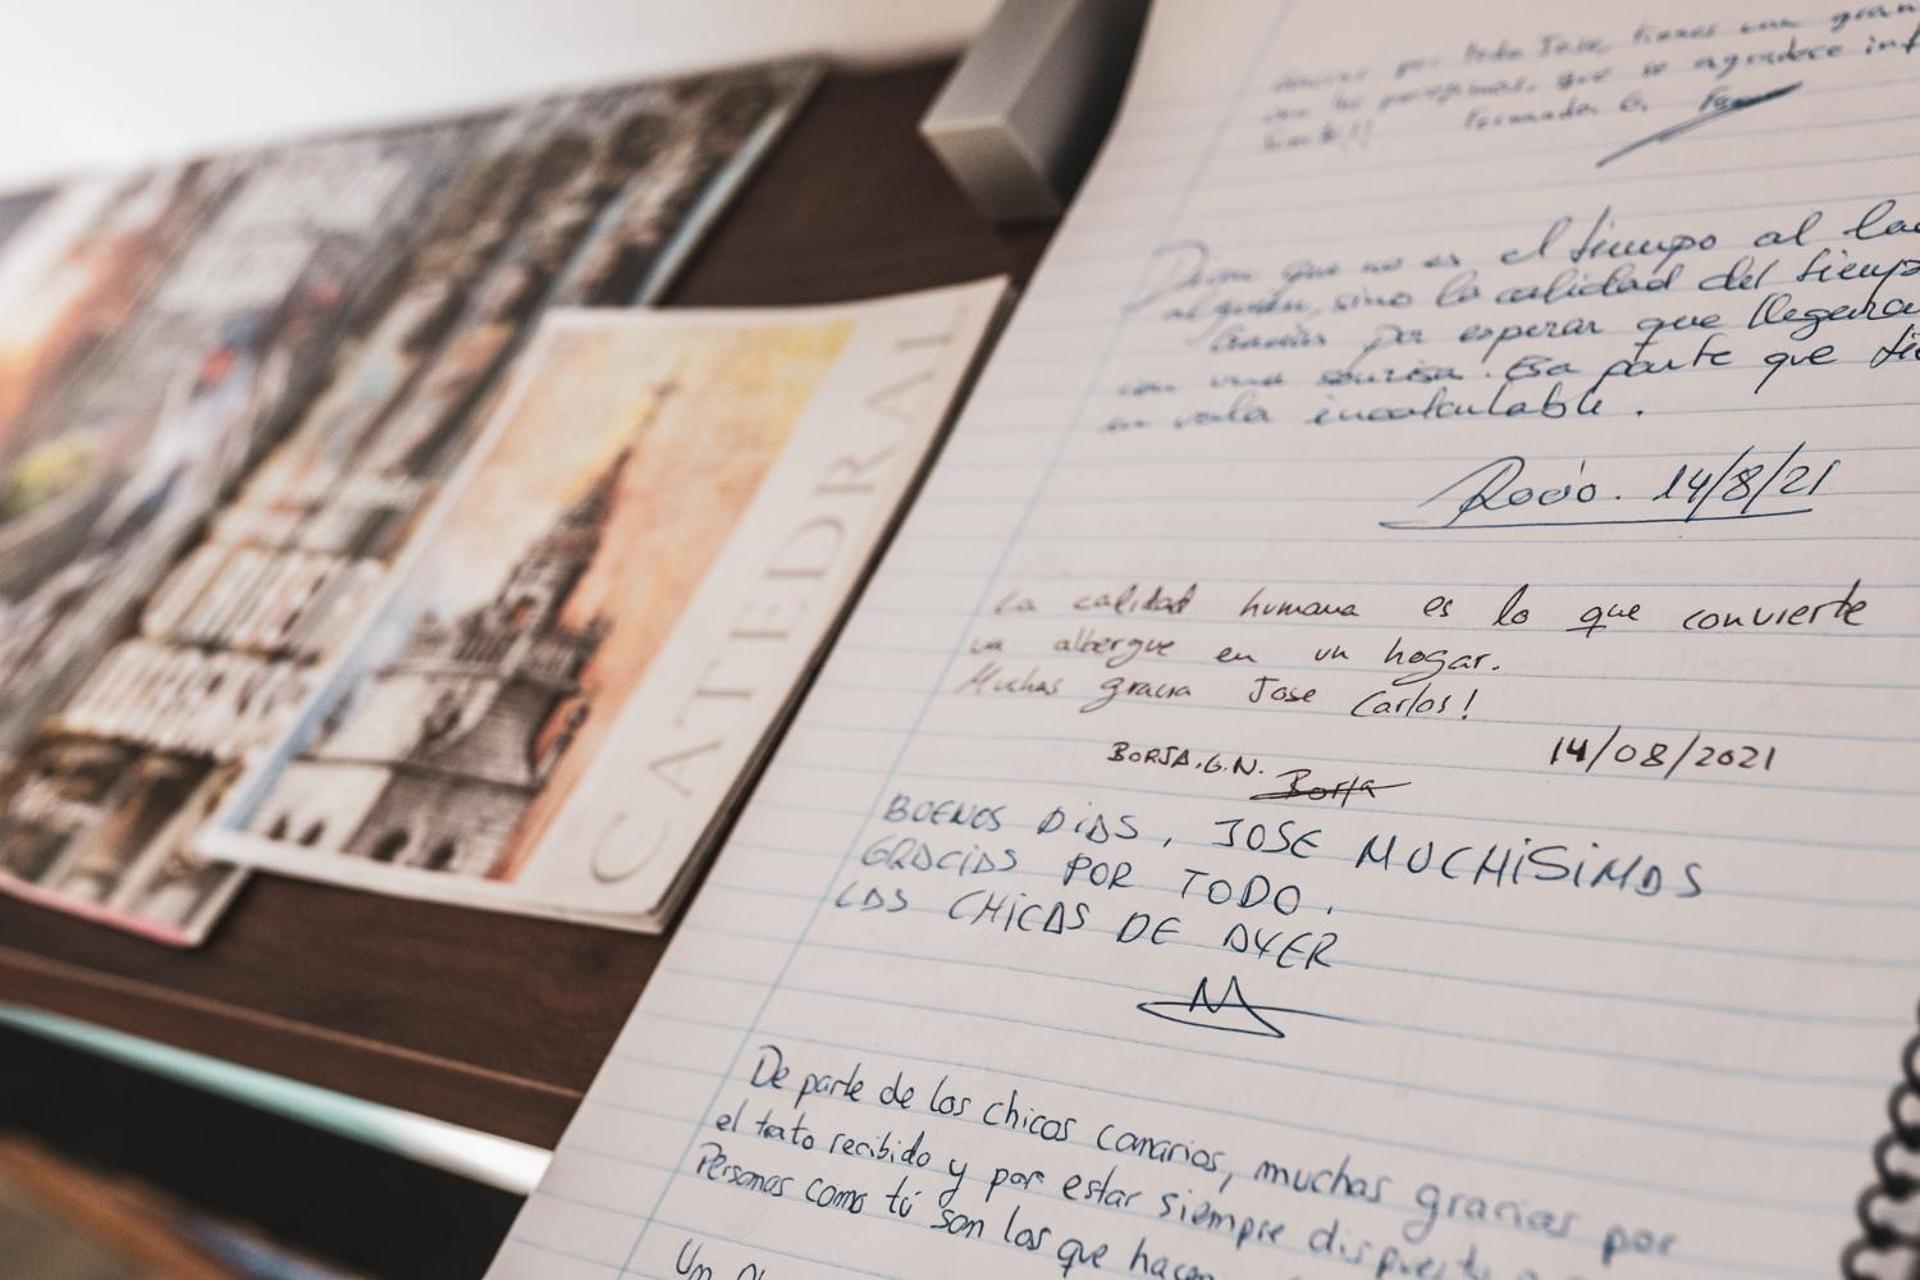 CATEDRAL
por todo Jose, tienes una gran
que se agradece
Fernando G.
Dicen que no es el tiempo al
alguien, sino la calidad del
Gracias por esperar que llegara
con una sonrisa. Esa parte que
un vala incalculable.
Rocío. 14/8/21
La calidad humana es lo que convierte
un albergue en un hogar.
Muchas gracia Jose Carlos!
14/08/2021
BORJA.G.N. Borja
BUENOS DiAS, JOSE MUCHíSiMAS
GRACiAS POR TODO.
LAS CHiCAS DE AYER
De parte de los chicos canarios, muchas gracias por
el trato recibido y por estar siempre dispuesto a
Personas como tú son las que hacen
Un